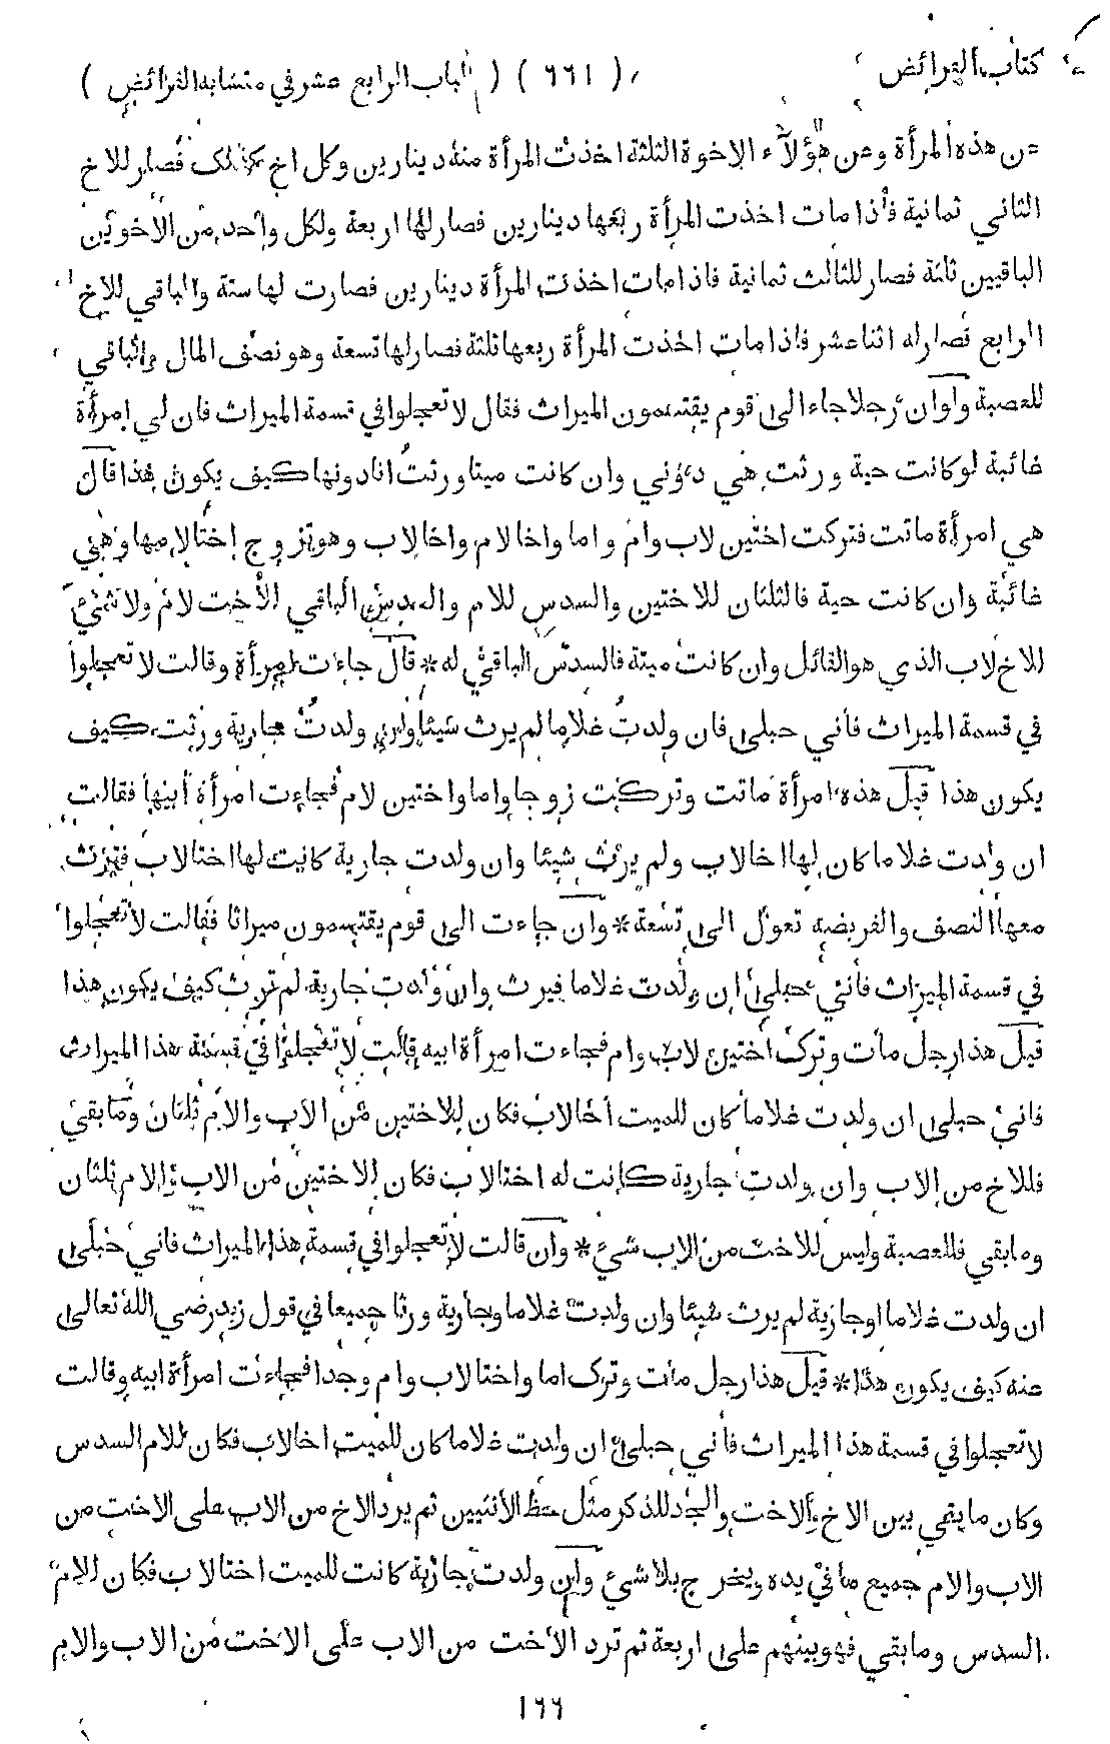 كتاب الفرائض ( ٦٦١ ) ( الباب الرابع عشر في متشابه الفرائض )
عن هذه المرأة وعن هؤلآء الاخوة الثلثة اخذت المرأة منه دينارين وكل اخ كذلك فصار للاخ
الثاني ثمانية فاذا مات اخذت المرأة ربعها دينارين فصار لها اربعة ولكل واحد من الاخوين
الباقيين ثلثة فصار للثالث ثمانية فاذا مات اخذت المرأة دينارين فصارت لها ستة والباقي للاخ
الرابع فصار له اثنا عشر فاذا مات اخذت المرأة ربعها ثلثة فصار لها تسعة وهو نصف المال والباقي
للعصبة ولو ان رجلا جاء الى قوم يقتسمون الميراث فقال لا تعجلوا في قسمة الميراث فان لي امرأة
غائبة لو كانت حية ورثت هي دوني وان كانت ميتا ورثت انا دونها كيف يكون هذا قال
هي امرأة ماتت فتركت اختين لاب وام و اما واخا لام واخا لاب وهو تزوج اختا لامها وهي
غائبة وان كانت حية فالثلثان للاختين والسدس للام والسدس الباقي للاخت لام ولا شيئ
للاخ لاب الذي هو القائل وان كانت ميتة فالسدس الباقي له * قال جاءت امرأة وقالت لا تعجلوا
في قسمة الميراث فاني حبلى فان ولدت غلاما لم يرث شيئا وان ولدت جارية ورثت كيف
يكون هذا قيل هذه امرأة ماتت وتركت زوجا واما واختين لام فجاءت امرأة ابيها فقالت
ان ولدت غلاما كان لها اخا لاب ولم يرث شيئا وان ولدت جارية كانت لها اختا لاب فترث
معها النصف والفريضة تعول الى تسعة * وان جاءت الى قوم يقتسمون ميراثا فقالت لا تعجلوا
في قسمة الميراث فاني حبلى ان ولدت غلاما فيرث وان ولدت جارية لم ترث كيف يكون هذا
قيل هذا رجل مات وترك اختين لاب وام فجاءت امرأة ابيه قالت لا تعجلوا في قسمة هذا الميراث
فاني حبلى ان ولدت غلاما كان للميت اخا لاب فكان للاختين من الاب والام ثلثان وما بقي
فللاخ من الاب وان ولدت جارية كانت له اختا لاب فكان للاختين من الاب والام ثلثان
وما بقي فللعصبة وليس للاخت من الاب شيئ * وان قالت لا تعجلوا في قسمة هذا الميراث فاني حبلى
ان ولدت غلاما او جارية لم يرث شيئا وان ولدت غلاما وجارية ورثا جميعا في قول زيد رضي الله تعالى
عنه كيف يكون هذا * قيل هذا رجل مات وترك اما واختا لاب وام وجدا فجاءت امرأة ابيه وقالت
لا تعجلوا في قسمة هذا الميراث فاني حبلى ان ولدت غلاما كان للميت اخا لاب فكان للام السدس
وكان ما بقي بين الاخ والاخت والجد للذكر مثل حظ الانثيين ثم يرد الاخ من الاب على الاخت من
الاب والام جميع ما في يده ويخرج بلا شيئ وان ولدت جارية كانت للميت اختا لاب فكان للام
السدس وما بقي فهو بينهم على اربعة ثم ترد الاخت من الاب على الاخت من الاب والام
١٦٦